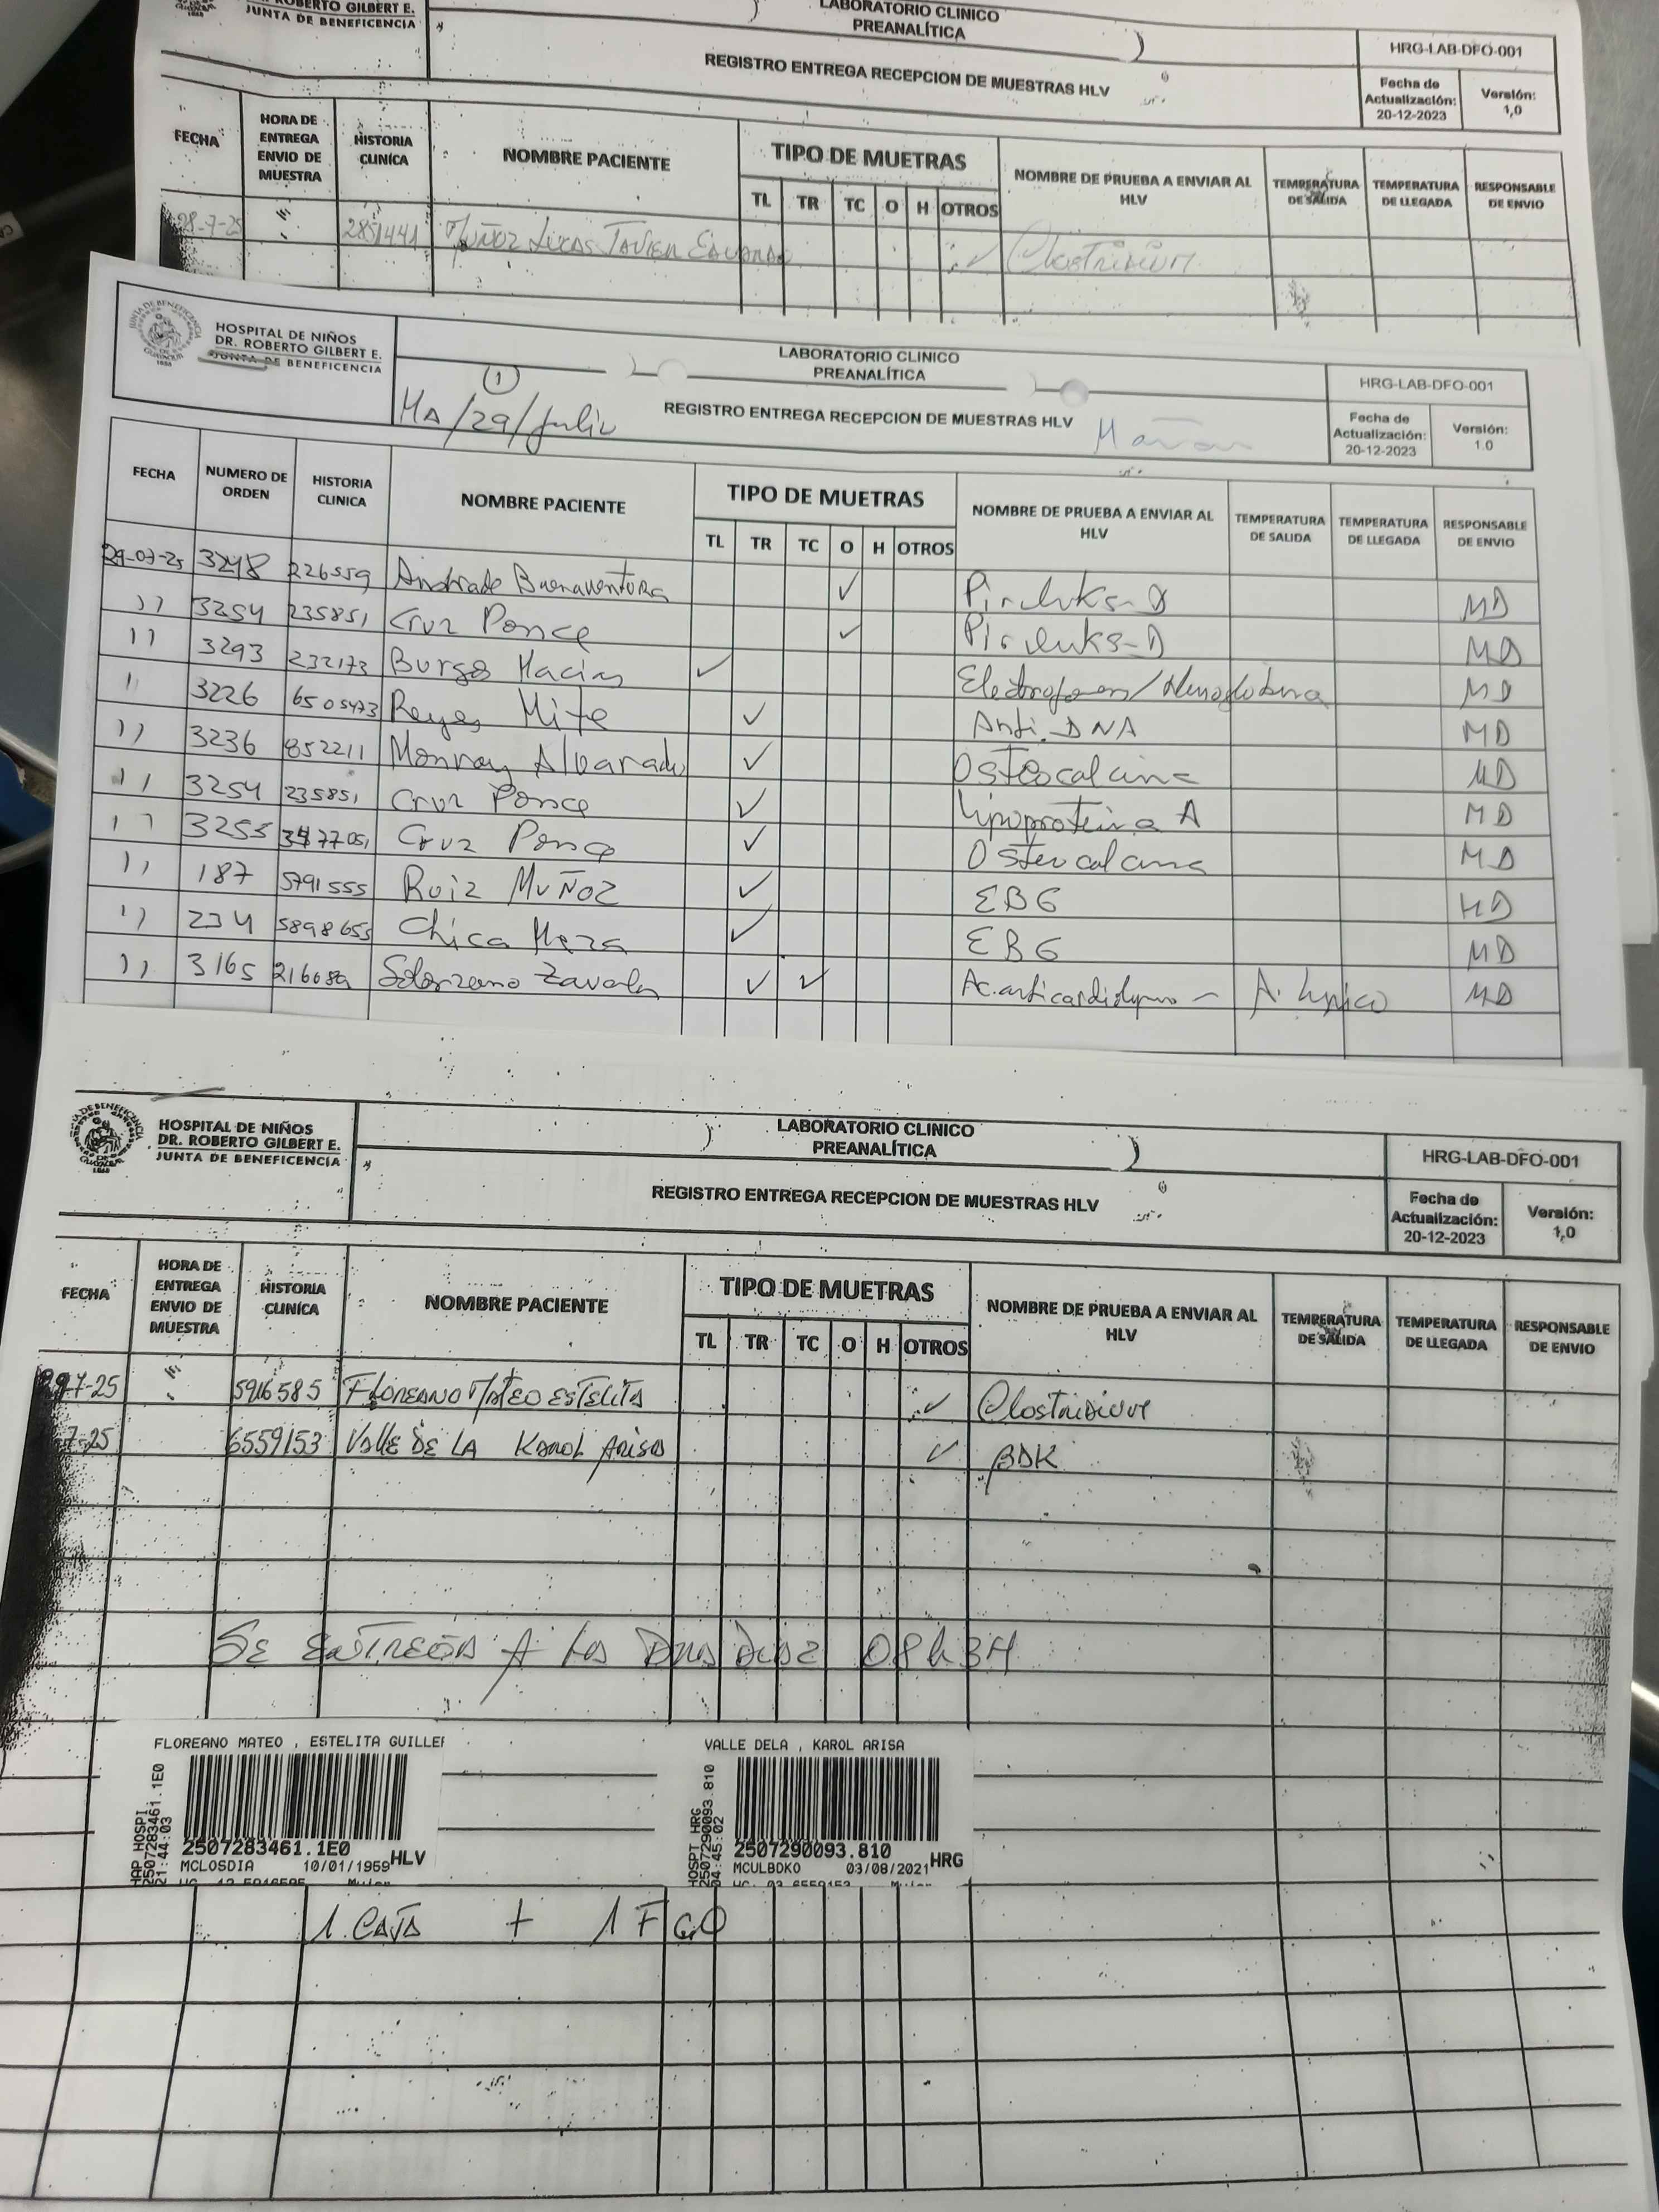 ROBERTO GILBERT E.
JUNTA DE BENEFICENCIA
LABORATORIO CLINICO
PREANALÍTICA
REGISTRO ENTREGA RECEPCION DE MUESTRAS HLV
HRG-LAB-DFO-001
Fecha de Actualización: 20-12-2023
Versión: 1,0
FECHA HORA DE ENTREGA ENVIO DE MUESTRA HISTORIA CLINÍCA NOMBRE PACIENTE TIPO DE MUETRAS NOMBRE DE PRUEBA A ENVIAR AL HLV TEMPERATURA DE SALIDA TEMPERATURA DE LLEGADA RESPONSABLE DE ENVIO
TL TR TC O H OTROS
28-7-25 Muñoz Lucas Javier Eduardo ✓ Clostridium
HOSPITAL DE NIÑOS
DR. ROBERTO GILBERT E.
JUNTA DE BENEFICENCIA
LABORATORIO CLINICO
PREANALÍTICA
1
Ma/29/Julio
REGISTRO ENTREGA RECEPCION DE MUESTRAS HLV
HRG-LAB-DFO-001
Fecha de Actualización: 20-12-2023
Versión: 1.0
FECHA NUMERO DE ORDEN HISTORIA CLINICA NOMBRE PACIENTE TIPO DE MUETRAS NOMBRE DE PRUEBA A ENVIAR AL HLV TEMPERATURA DE SALIDA TEMPERATURA DE LLEGADA RESPONSABLE DE ENVIO
TL TR TC O H OTROS
29-07-25 3248 226559 Andrade Buenaventura ✓ MD
'' 3254 235851 Cruz Ponce ✓ MD
'' 3293 232173 Burgos Macias ✓ Electroforesis/Hemoglobina MD
'' 3226 6505473 Reyes Mite ✓ Anti. DNA MD
'' 3236 852211 Monroy Alvarado ✓ Osteocalcina MD
'' 3254 235851 Cruz Ponce ✓ Lipoproteina A MD
'' 3253 Cruz Ponce ✓ Osteocalcina MD
'' 187 5791555 Ruiz Muñoz ✓ EBG MD
'' 234 5898653 Chica Meza ✓ EBG MD
'' 3165 Solorzano Zavala ✓ ✓ MD
HOSPITAL DE NIÑOS
DR. ROBERTO GILBERT E.
JUNTA DE BENEFICENCIA
LABORATORIO CLINICO
PREANALÍTICA
REGISTRO ENTREGA RECEPCION DE MUESTRAS HLV
HRG-LAB-DFO-001
Fecha de Actualización: 20-12-2023
Versión: 1,0
FECHA HORA DE ENTREGA ENVIO DE MUESTRA HISTORIA CLINÍCA NOMBRE PACIENTE TIPO DE MUETRAS NOMBRE DE PRUEBA A ENVIAR AL HLV TEMPERATURA DE SALIDA TEMPERATURA DE LLEGADA RESPONSABLE DE ENVIO
TL TR TC O H OTROS
29-7-25 5916585 Floreano Mateo Estelita ✓ Clostridium
7-25 6559153 Valle De La Karol Arisa ✓ BDK
SE ENTREGA A LAS 08h34
FLOREANO MATEO , ESTELITA GUILLER
2507283461.1E0
21:44:03
2507283461.1E0
MCLOSDIA 10/01/1959 HLV
VALLE DELA , KAROL ARISA
HOSPT HRG
2507290093.810
04:45:02
2507290093.810
MCULBDKO 03/08/2021 HRG
1 CAJA + 1 FCO